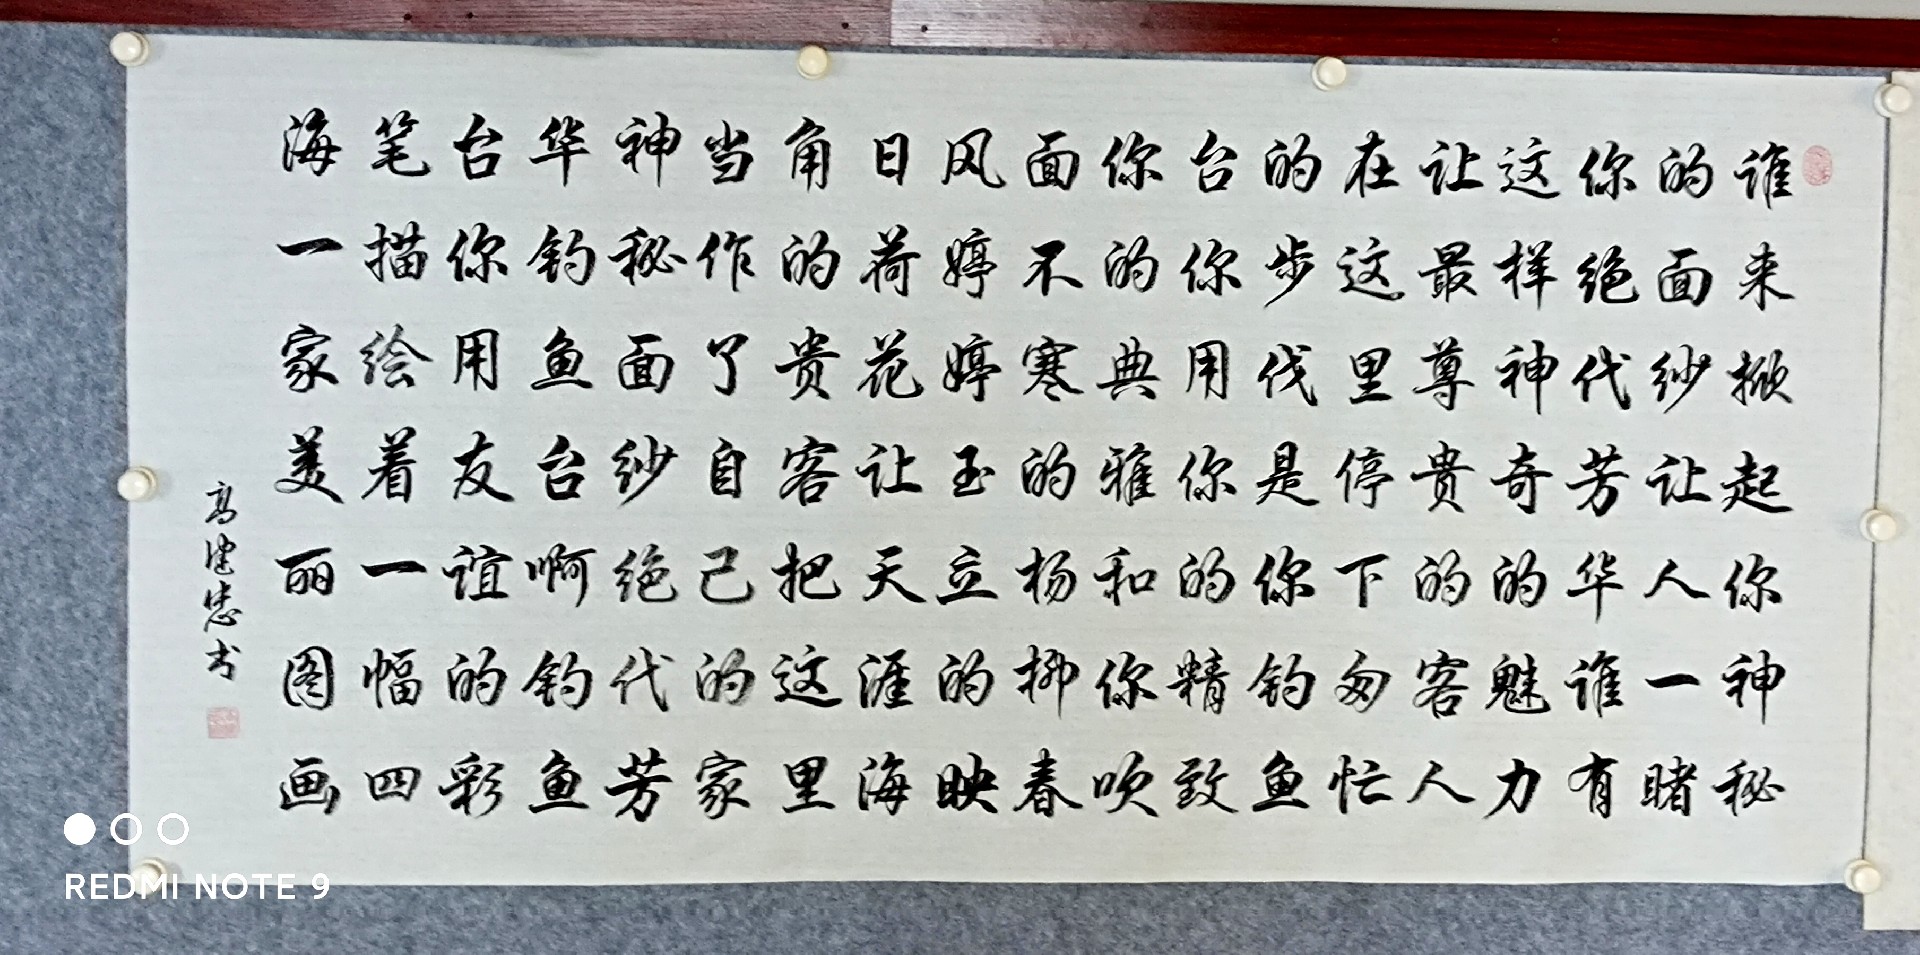 谁来掀起你神秘
的面纱让人一睹
你绝代芳华谁有
这样神奇的魅力
让最尊贵的客人
在这里停下匆忙
的步伐是你钓鱼
台你用你的精致
你的典雅和你吹
面不寒的杨柳春
风婷婷玉立的映
日荷花让天涯海
角的贵客把这里
当作了自己的家
神秘面纱绝代芳
华钓鱼台啊钓鱼
台你用友谊的彩
笔描绘着一幅四
海一家美丽图画
高建忠书
REDMI NOTE 9